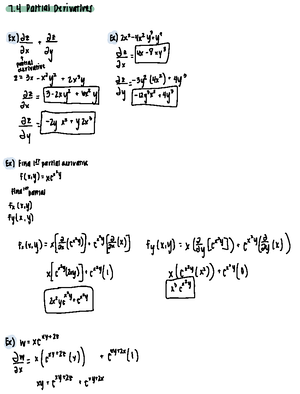 7.4 Partial Derivatives
Ex) ∂z/∂x , ∂z/∂y
partial derivative
z = 3x - x²y² + 2x³y
∂z/∂x = 3 - 2xy² + 6x² y
∂z/∂y =
Ex) 2x² - 4x² y³ + y⁴
∂z/∂x = 4x - 8xy³
∂z/∂y = -3y² (4x²) + 4y³
-12y²x² + 4y³
Ex) Find 1st partial derivative
f(x,y) = xe^(x²y)
Find 1st partial
fx (x,y)
fy (x,y)
fx (x,y) = x[∂/∂x (e^(x²y))] + e^(x²y) [∂/∂x (x)]
x[e^(x²y)(2xy)] + e^(x²y) (1)
2x²y e^(x²y) + e^(x²y)
fy (x,y) = x (∂/∂y [e^(x²y)]) + e^(x²y) (∂/∂y (x))
x (e^(x²y) (x²)) + e^(x²y) (0)
x³ e^(x²y)
Ex) w = xe^(xy+2z)
∂w/∂x = x(e^(xy+2z) (y)) + e^(xy+2z) (1)
xy e^(xy+2z) + e^(xy+2z)